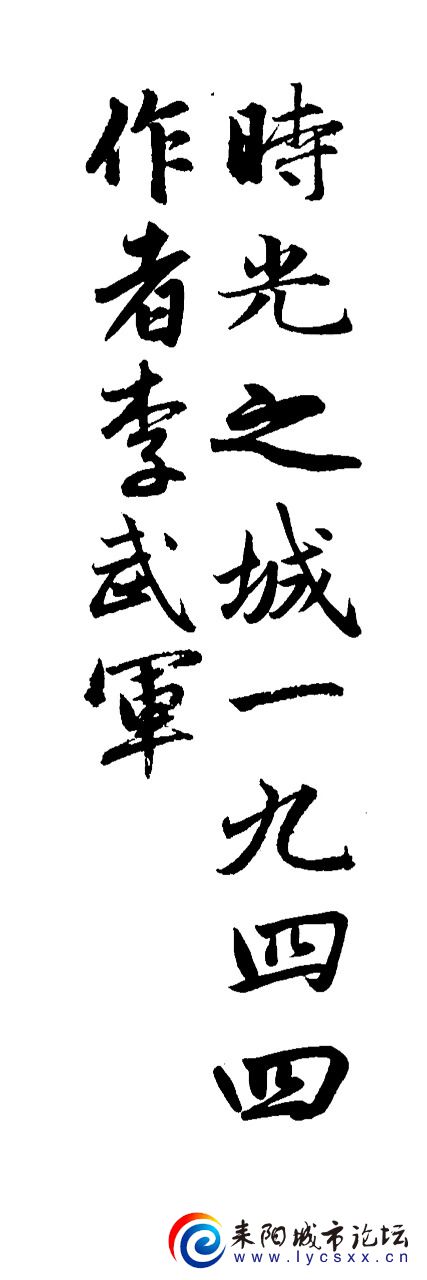 時光之城一九四四
作者李武軍
耒阳城市论坛
www.lycsxx.cn